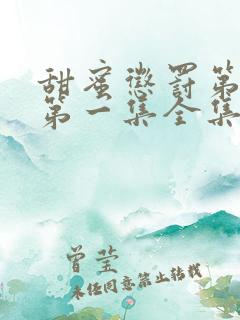 甜蜜惩罚第
第一集全集
曾莹
未经同意禁止转载